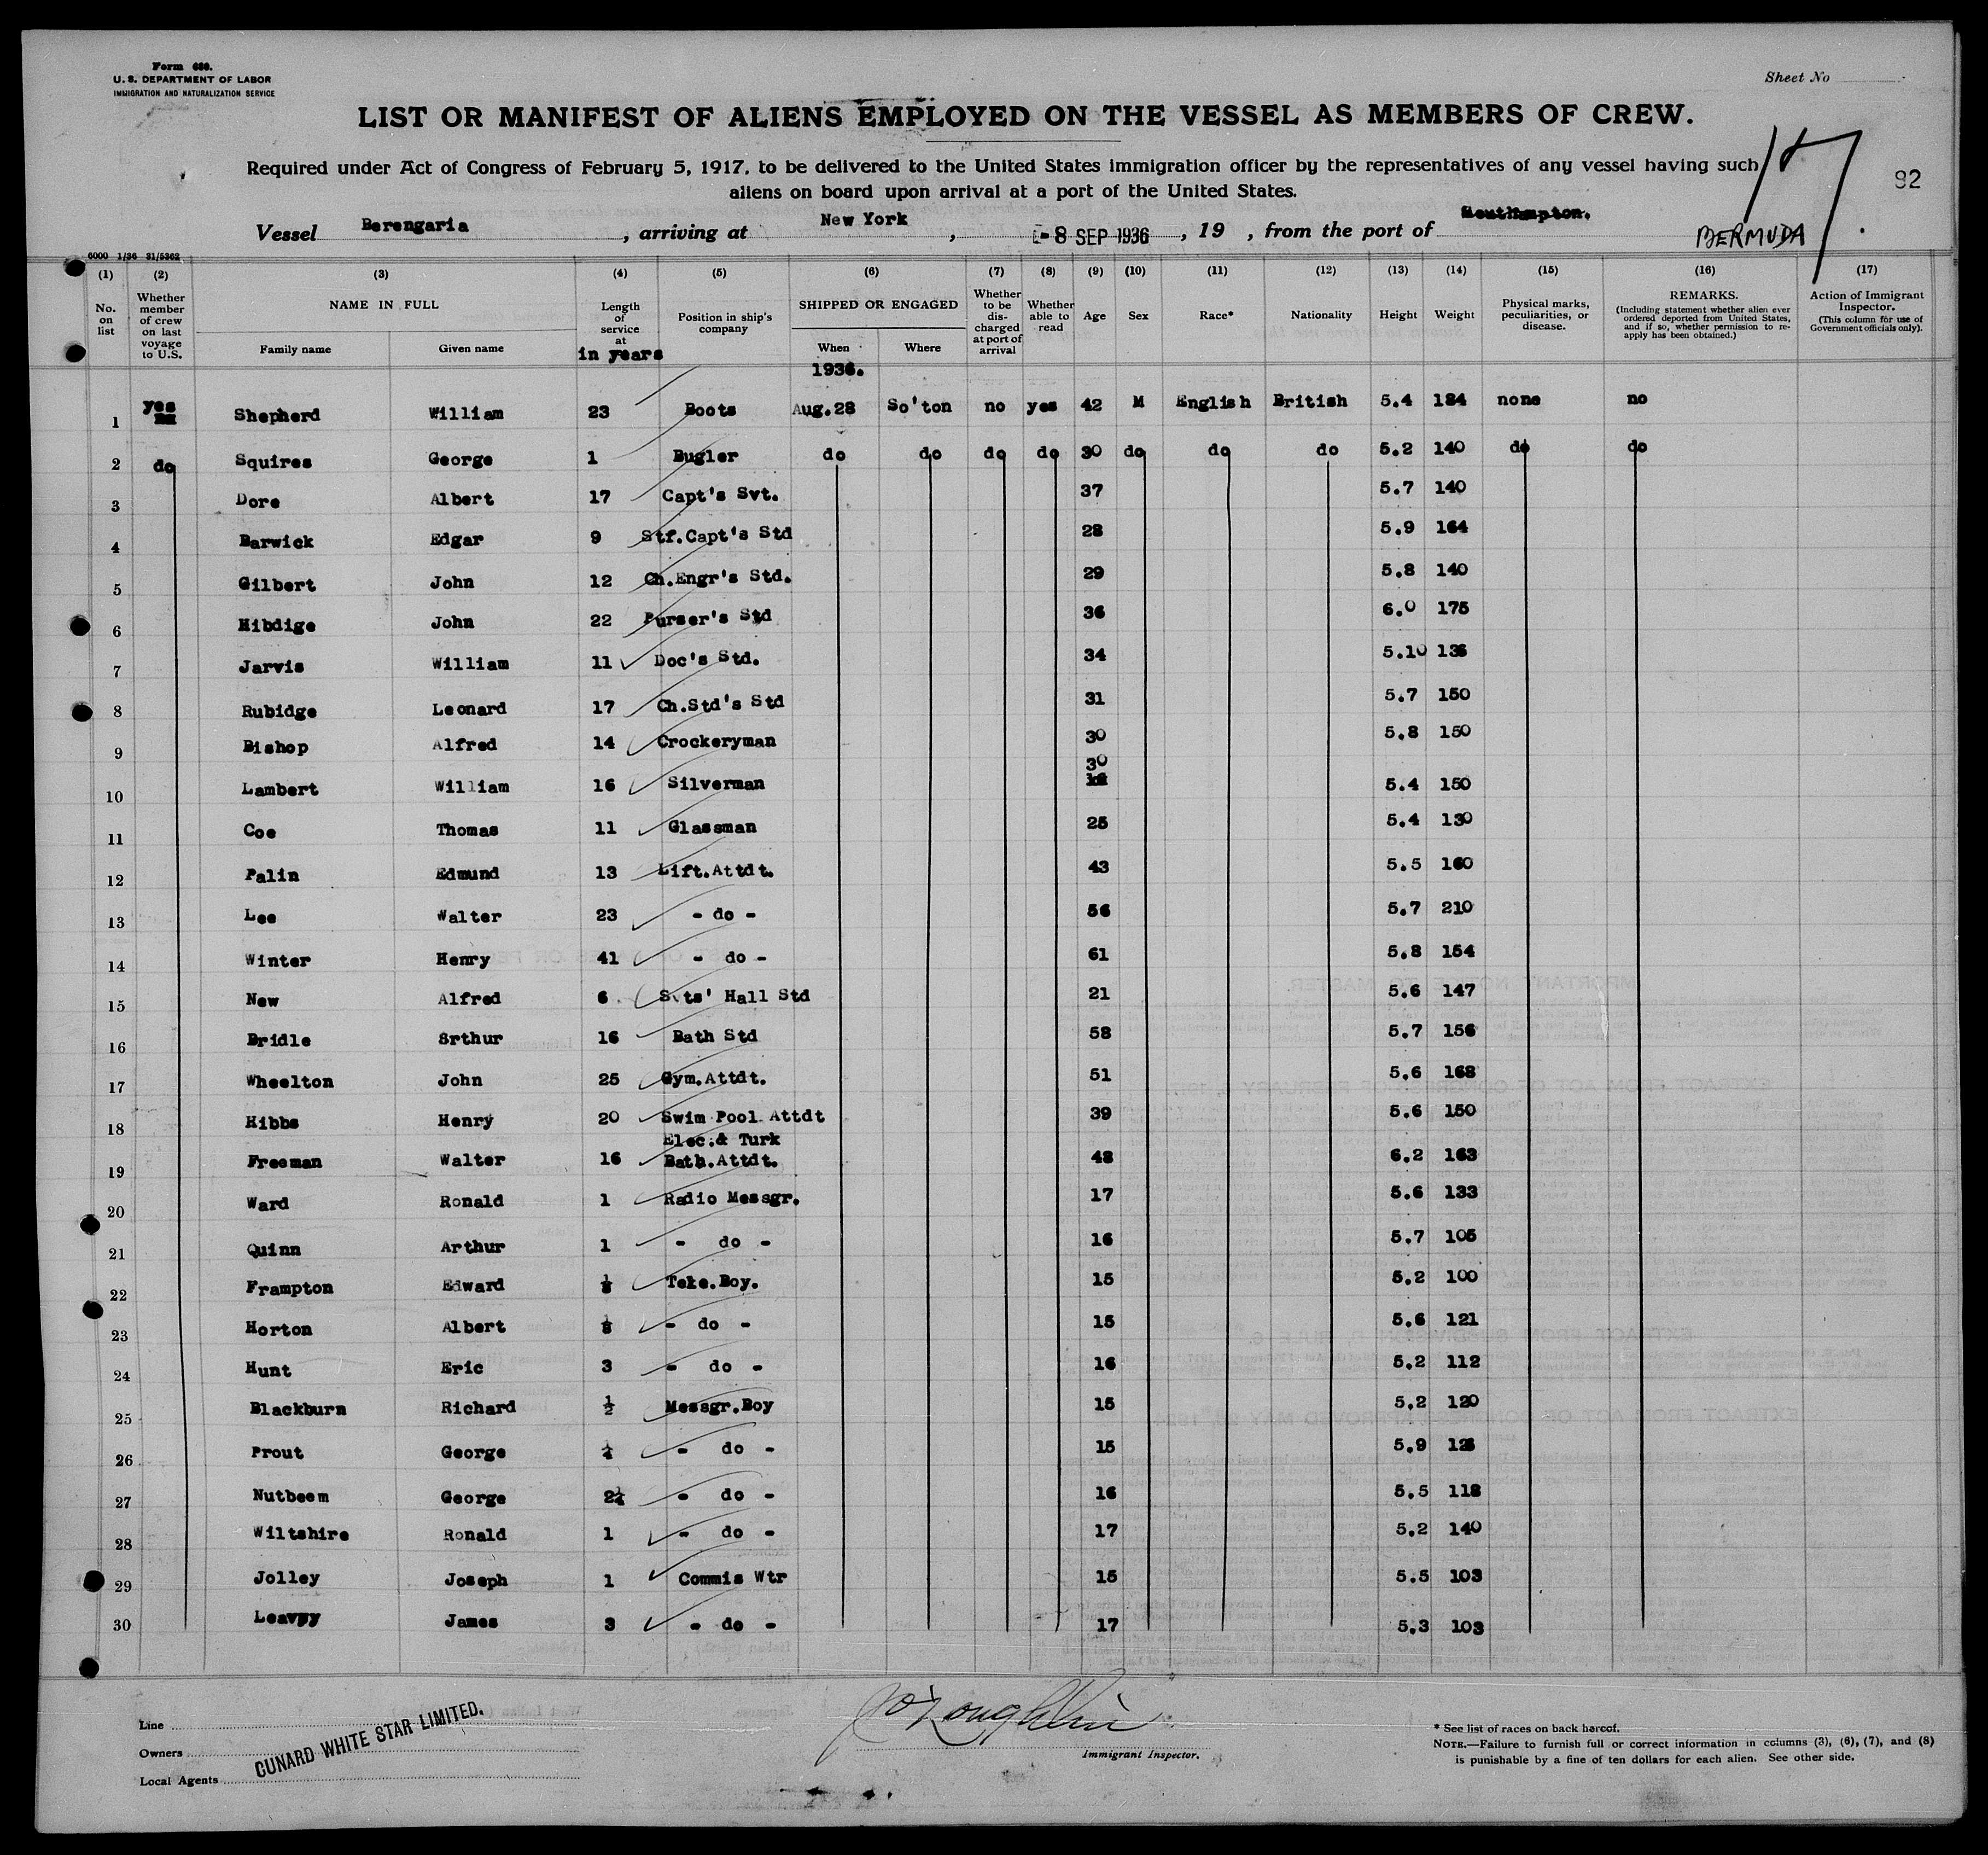 Form 680.
U. S. DEPARTMENT OF LABOR
IMMIGRATION AND NATURALIZATION SERVICE
Sheet No
LIST OR MANIFEST OF ALIENS EMPLOYED ON THE VESSEL AS MEMBERS OF CREW.
Required under Act of Congress of February 5, 1917, to be delivered to the United States immigration officer by the representatives of any vessel having such
aliens on board upon arrival at a port of the United States.
17
92
Vessel Berengaria, arriving at New York, - 8 SEP 1936, 19 , from the port of Southampton. BERMUDA
6000 1/36 31/5362
(1) (2) (3) (4) (5) (6) (7) (8) (9) (10) (11) (12) (13) (14) (15) (16) (17)
No. on list
Whether member of crew on last voyage to U.S.
NAME IN FULL
Family name
Given name
Length of service at in years
Position in ship's company
SHIPPED OR ENGAGED
When
Where
Whether to be discharged at port of arrival
Whether able to read
Age
Sex
Race*
Nationality
Height
Weight
Physical marks, peculiarities, or disease.
REMARKS.
(Including statement whether alien ever ordered deported from United States, and if so, whether permission to re-apply has been obtained.)
Action of Immigrant Inspector.
(This column for use of Government officials only).
1936.
1 yes Shepherd William 23 Boots Aug.28 So'ton no yes 42 M English British 5.4 184 none no
2 do Squires George 1 Bugler do do do do 30 do do do 5.2 140 do do
3 Dore Albert 17 Capt's Svt. 37 5.7 140
4 Barwick Edgar 9 Stf.Capt's Std 28 5.9 164
5 Gilbert John 12 Ch.Engr's Std. 29 5.8 140
6 Hibdige John 22 Purser's Std 36 6.0 175
7 Jarvis William 11 Doc's Std. 34 5.10 136
8 Rubidge Leonard 17 Ch.Std's Std 31 5.7 150
9 Bishop Alfred 14 Crockeryman 30 5.8 150
10 Lambert William 16 Silverman 30 5.4 150
11 Coe Thomas 11 Glassman 25 5.4 130
12 Palin Edmund 13 Lift.Attdt. 43 5.5 160
13 Lee Walter 23 - do - 56 5.7 210
14 Winter Henry 41 - do - 61 5.8 154
15 New Alfred 6 Svts' Hall Std 21 5.6 147
16 Bridle Srthur 16 Bath Std 58 5.7 156
17 Wheelton John 25 Gym.Attdt. 51 5.6 168
18 Hibbs Henry 20 Swim Pool Attdt 39 5.6 150
Elec.& Turk
19 Freeman Walter 16 Bath.Attdt. 48 6.2 163
20 Ward Ronald 1 Radio Messgr. 17 5.6 133
21 Quinn Arthur 1 - do - 16 5.7 105
22 Frampton Edward Teke.Boy. 15 5.2 100
23 Horton Albert - do - 15 5.6 121
24 Hunt Eric 3 - do - 16 5.2 112
25 Blackburn Richard ½ Messgr.Boy 15 5.2 120
26 Prout George ¼ - do - 15 5.9
27 Nutbeem George 2¼ - do - 16 5.5 118
28 Wiltshire Ronald 1 - do - 17 5.2 140
29 Jolley Joseph 1 Commis Wtr 15 5.5 103
30 James 3 - do - 17 5.3 103
Line
Owners
Local Agents
CUNARD WHITE STAR LIMITED.
J O'Loughlin
Immigrant Inspector.
* See list of races on back hereof.
NOTE.—Failure to furnish full or correct information in columns (3), (6), (7), and (8)
is punishable by a fine of ten dollars for each alien. See other side.